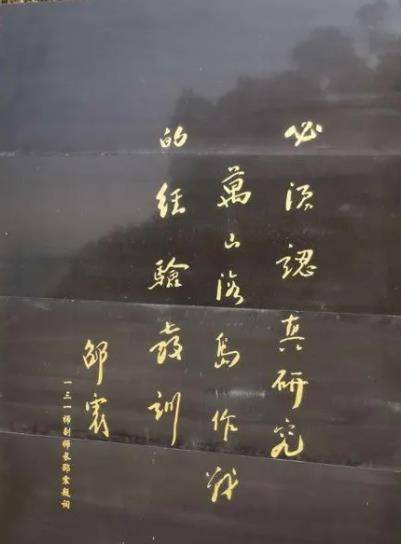 必须認真研究
萬山海島作战
的经驗教訓
邵震
一三一师副师长邵震题词